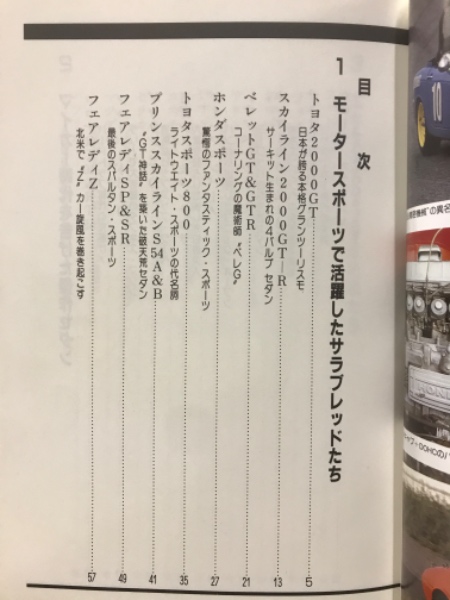 目次
1 モータースポーツで活躍したサラブレッドたち
トヨタ2000GT 5
日本が誇る本格グランツーリスモ
スカイライン2000GT-R 13
サーキット生まれの4バルブセダン
ベレットGT&GTR 21
コーナリングの魔術師“ベレG”
ホンダスポーツ 27
驚愕のファンタスティック・スポーツ
トヨタスポーツ800 35
ライトウエイト・スポーツの代名詞
プリンススカイラインS54A&B 41
“GT神話”を築いた破天荒セダン
フェアレディSP&SR 49
最後のスパルタン・スポーツ
フェアレディZ 57
北米で“Z”カー旋風を巻き起こす
10
の異名